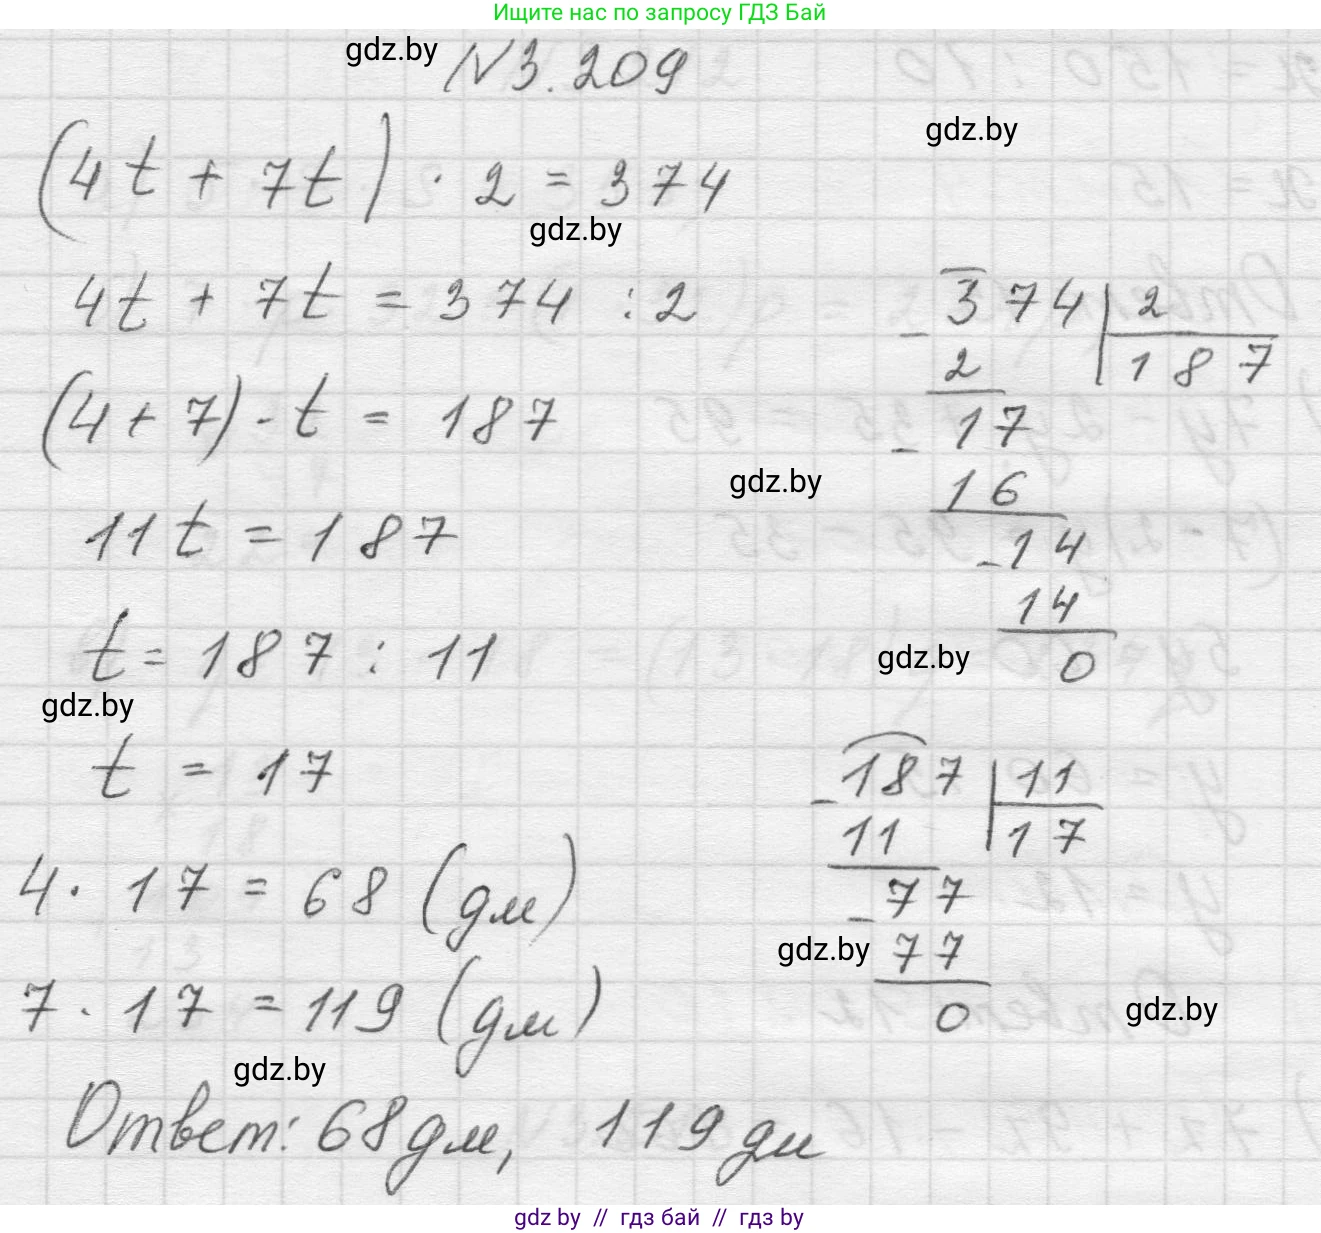 Ищите нас по запросу ГДЗ Бай
gdz.by
№3.209
gdz.by
(4t + 7t) · 2 = 374
gdz.by
4t + 7t = 374 : 2
374 | 2
- 2 | 187
(4 + 7) · t = 187
- 17
gdz.by
16
11t = 187
- 14
14
t = 187 : 11
gdz.by
0
gdz.by
t = 17
- 187 | 11
11 | 17
4 · 17 = 68 (дм)
- 77
gdz.by
77
7 · 17 = 119 (дм)
0
gdz.by
gdz.by
Ответ: 68 дм, 119 дм
gdz by // гдз бай // гдз by